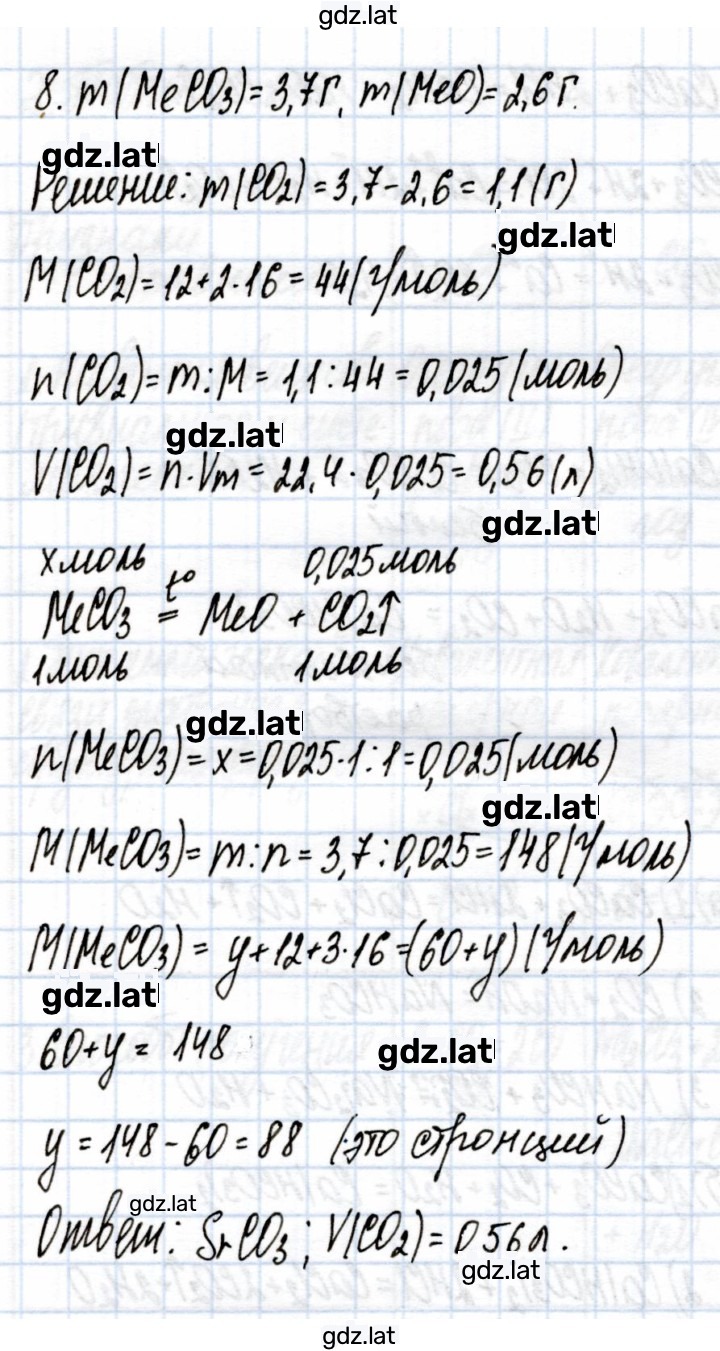 gdz.lat
8. m(MeCO₃)=3,7г, m(MeO)=2,6г.
gdz.lat
Решение: m(CO₂)=3,7-2,6=1,1(г)
gdz.lat
M(CO₂)=12+2·16=44(г/моль)
n(CO₂)=m:M=1,1:44=0,025(моль)
gdz.lat
V(CO₂)=n·Vm=22,4·0,025=0,56(л)
gdz.lat
x моль 0,025 моль
MeCO₃ t° = MeO + CO₂↑
1 моль 1 моль
gdz.lat
n(MeCO₃)=x=0,025·1:1=0,025(моль)
gdz.lat
M(MeCO₃)=m:n=3,7:0,025=148(г/моль)
M(MeCO₃)=y+12+3·16=(60+y)(г/моль)
gdz.lat
60+y=148
gdz.lat
y=148-60=88 (это стронций)
gdz.lat
Ответ: SrCO₃; V(CO₂)=0,56л.
gdz.lat
gdz.lat